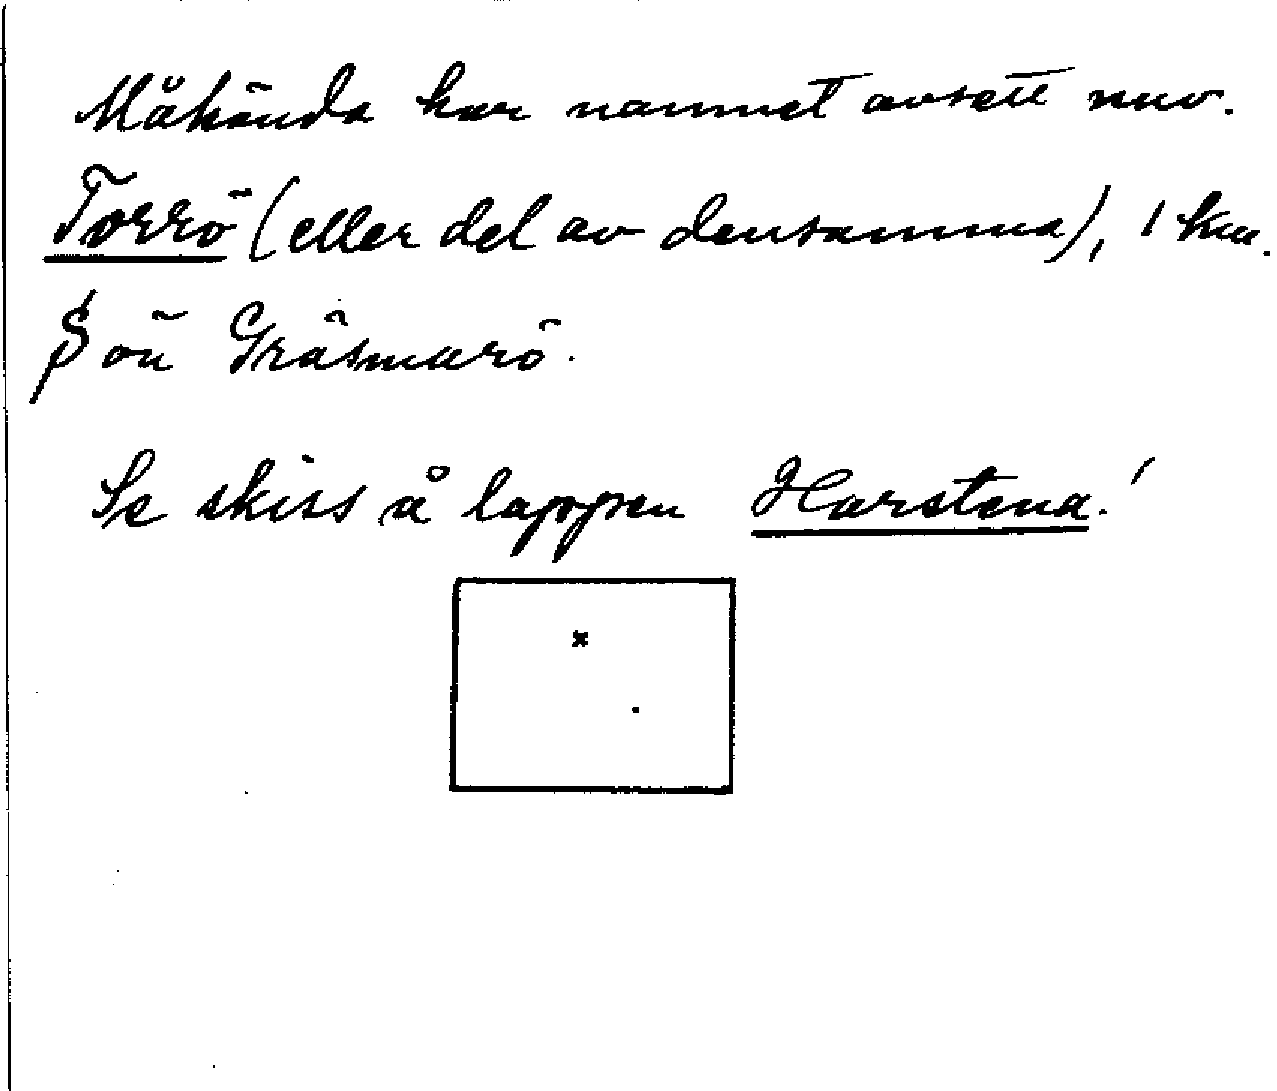 Måhända har namnet avsett nuv.
Torrö (eller del av densamma), 1 km.
S om Gräsmarö.
Se skiss å lappen Harstena!